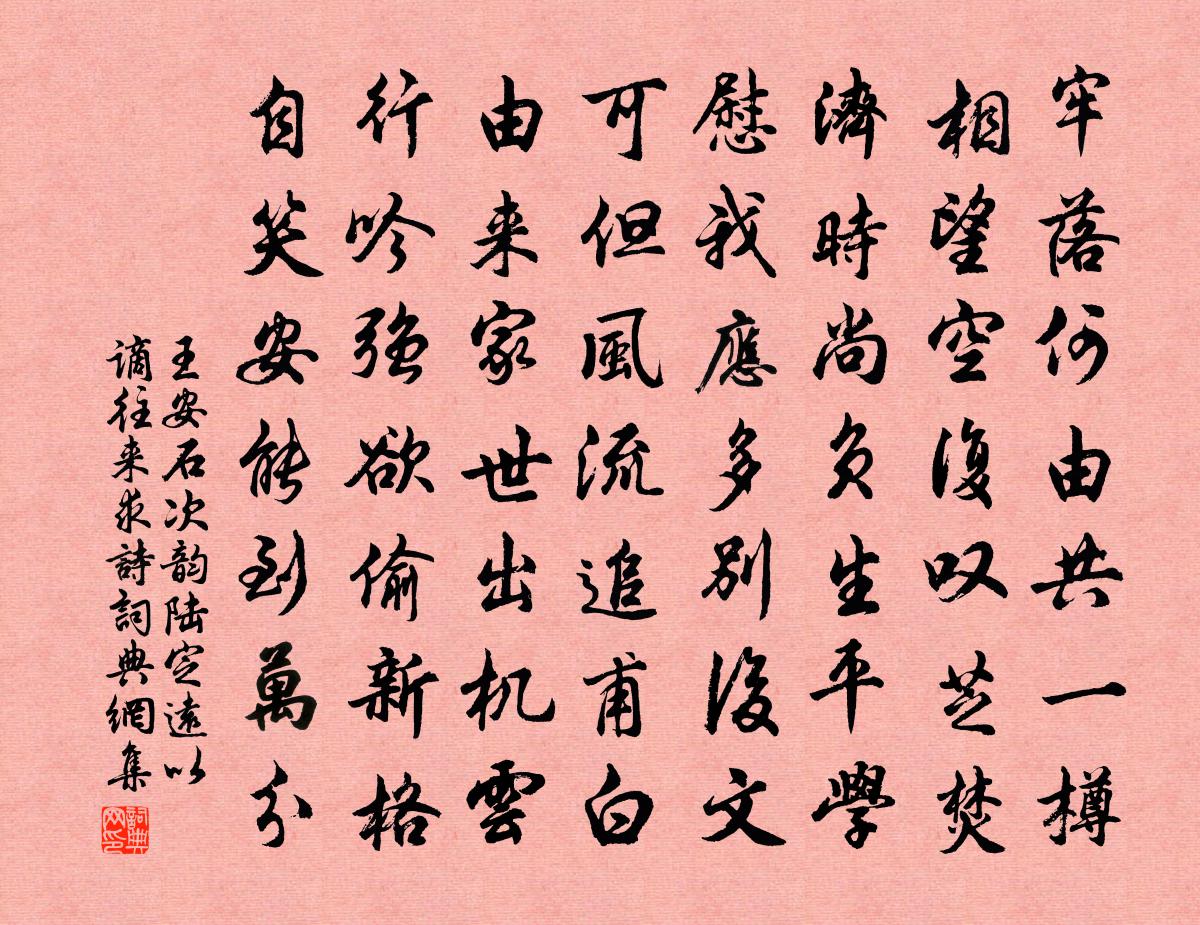 牢落何由共一樽
相望空復叹芝焚
濟時尚負生平學
慰我應多別後文
可但風流追甫白
由来家世出机雲
行吟强欲偷新格
自笑安能到萬分
王安石次韵陆定遠以
谪往来求詩詞典網集
詞典网印